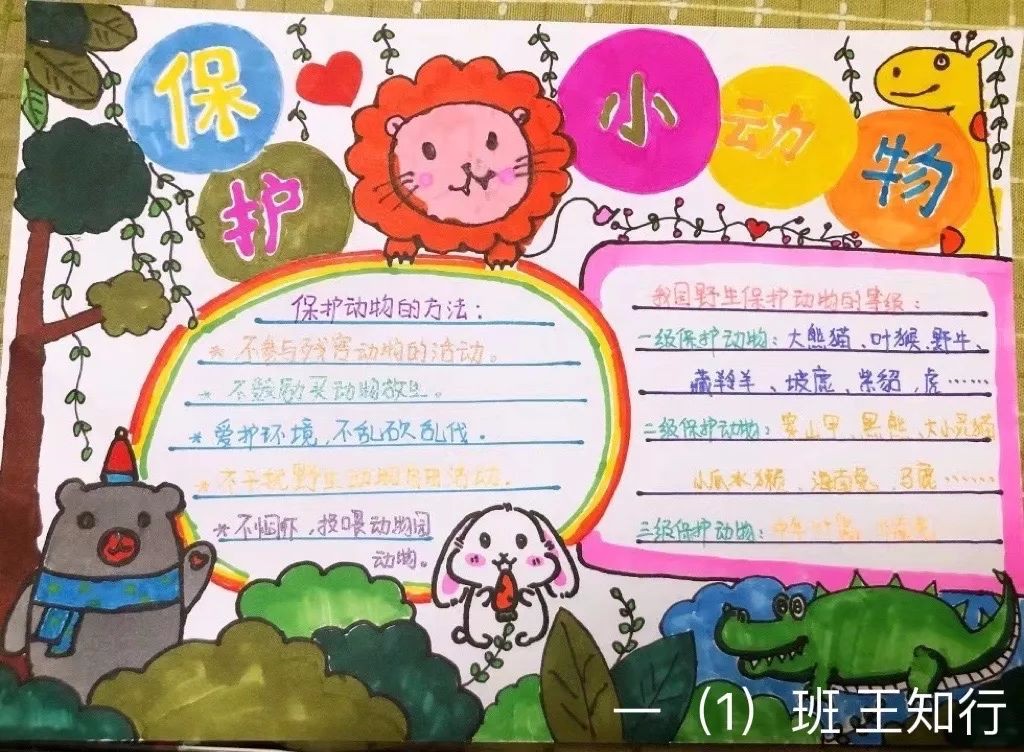 保护小动物
保护动物的方法：
* 不参与残害动物的活动。
* 不鼓励买动物放生。
* 爱护环境，不乱砍乱伐.
* 不干扰野生动物自由活动.
* 不恫吓，投喂动物园
动物。
我国野生保护动物的等级：
一级保护动物：大熊猫、叶猴、野牛、
藏羚羊、坡鹿、紫貂，虎……
二级保护动物：穿山甲、黑熊、大小灵猫
小爪水獭、海南兔、马鹿……
三级保护动物：
一（1）班 王知行